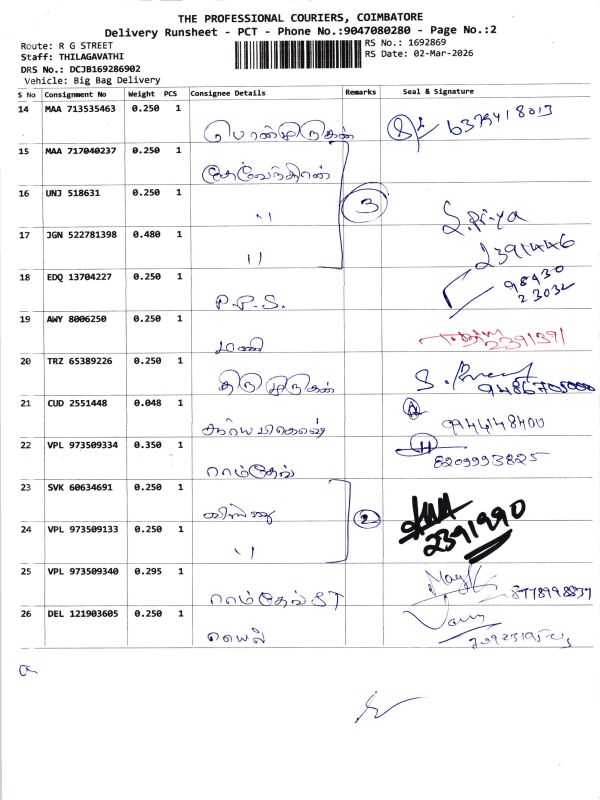 THE PROFESSIONAL COURIERS, COIMBATORE
Delivery Runsheet - PCT - Phone No.:9047080280 - Page No.:2
Route: R G STREET
RS No.: 1692869
Staff: THILAGAVATHI
RS Date: 02-Mar-2026
DRS No.: DCJB169286902
Vehicle: Big Bag Delivery
S No Consignment No Weight PCS Consignee Details Remarks Seal & Signature
14 MAA 713535463 0.250 1 பொன்முருகன் 6379418013
15 MAA 717040237 0.250 1 தேவேந்திரன்
16 UNJ 518631 0.250 1 〃 3 S.Priya
17 JGN 522781398 0.480 1 〃 2391446
18 EDQ 13704227 0.250 1 P.P.S. 98430 23032
19 AWY 8006250 0.250 1 மணி 2391391
20 TRZ 65389226 0.250 1 திருமுருகன்
21 CUD 2551448 0.048 1 9944148400
22 VPL 973509334 0.350 1 ராம்தேவ் 8209993825
23 SVK 60634691 0.250 1 விஷ்ணு 2 2391990
24 VPL 973509133 0.250 1 〃
25 VPL 973509340 0.295 1 ராம்தேவ் ST
26 DEL 121903605 0.250 1